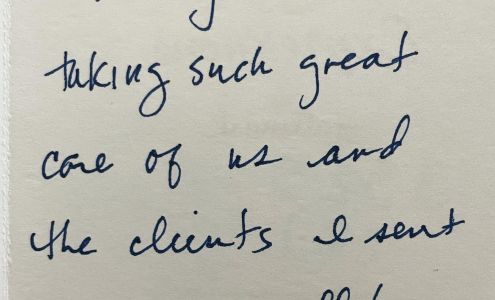 taking such great
care of us and
the clients I sent